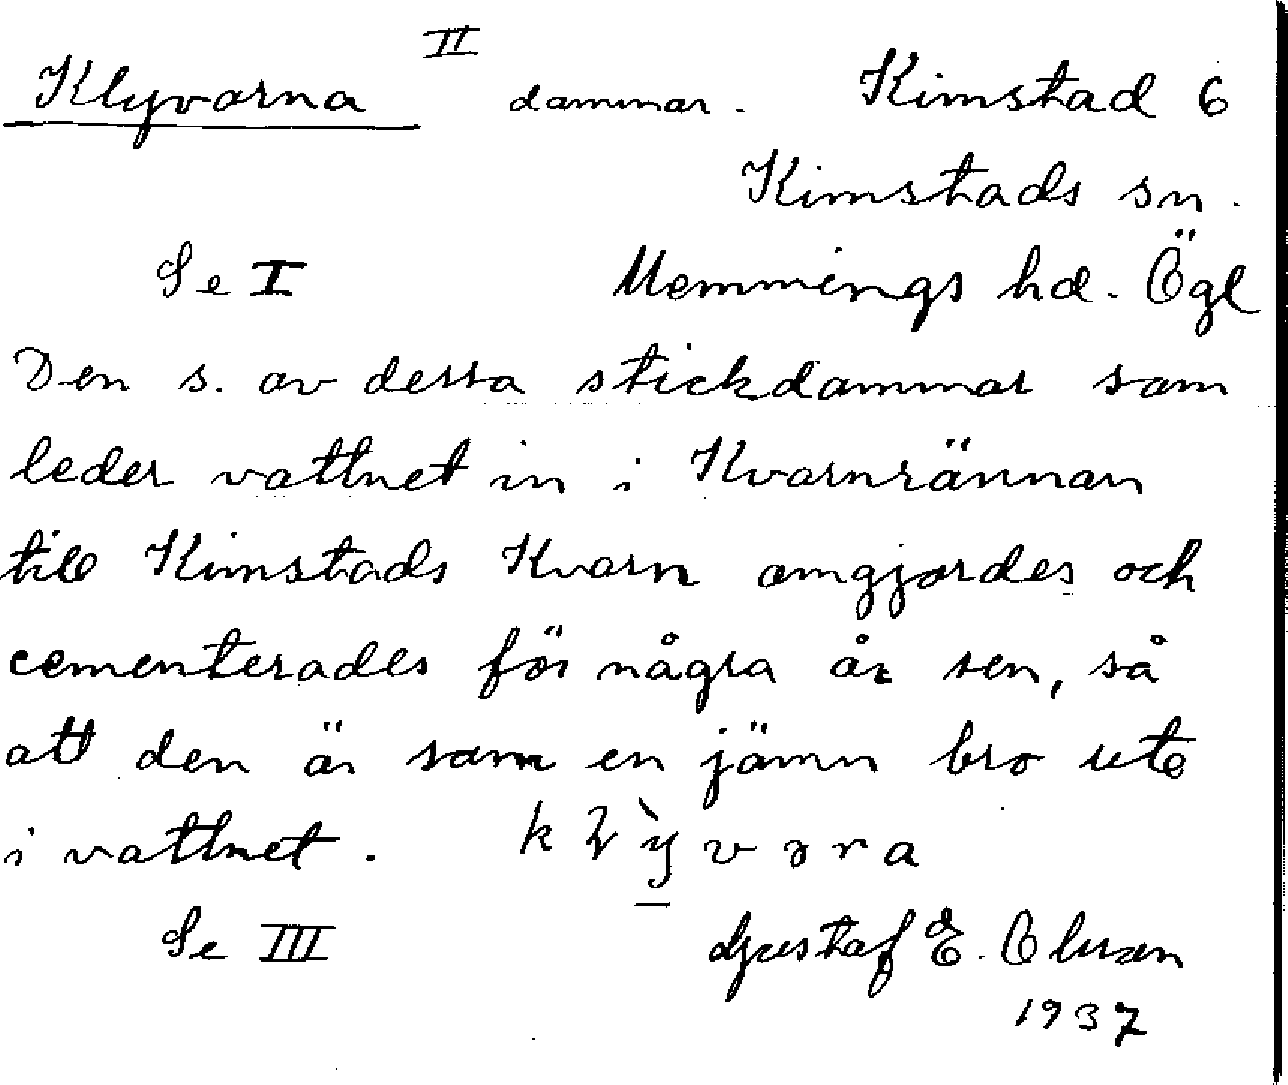 II
Klyvarna dammar. Kimstad 6
Kimstads sn.
Se I Memmings hd. Ögl
Den s. av dessa stickdammar som
leder vattnet in i Kvarnrännan
till Kimstads Kvarn omgjordes och
cementerades för några år sen, så
att den är som en jämn bro ute
i vattnet. k ỳ̠ v ə r a
Se III Gustaf E.
1937